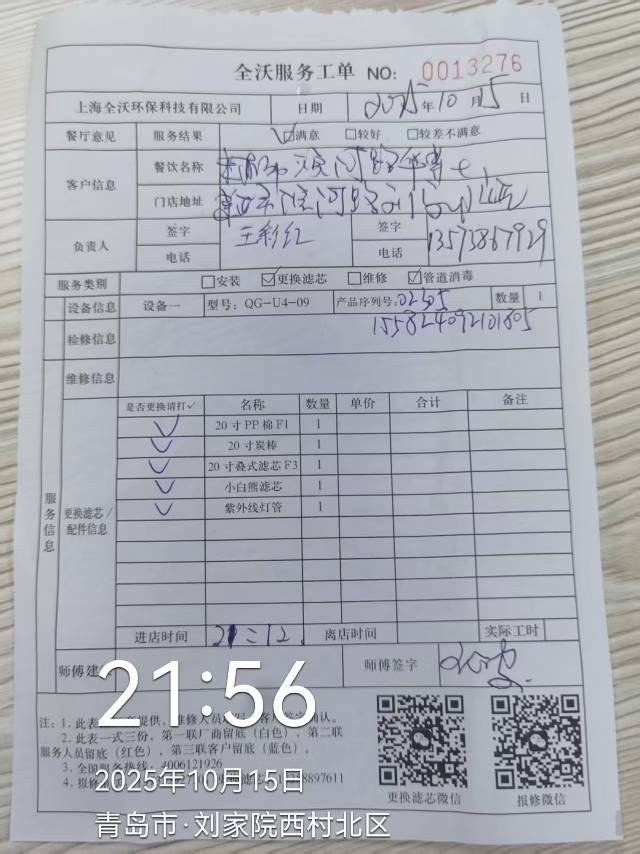 全沃服务工单 NO: 0013276
上海全沃环保科技有限公司 日期 2025年10月15日
餐厅意见 服务结果 ☑满意 □较好 □较差不满意
客户信息 餐饮名称
门店地址
负责人 签字 王彩红 签字
电话 电话 13573867929
服务类别 □安装 ☑更换滤芯 □维修 ☑管道消毒
设备信息 设备一 型号: QG-U4-09 产品序列号: 02305 数量 1
155824092101805
检修信息
维修信息
是否更换请打✓ 名称 数量 单价 合计 备注
✓ 20寸PP棉F1 1
✓ 20寸炭棒 1
✓ 20寸叠式滤芯F3 1
✓ 小白熊滤芯 1
✓ 紫外线灯管 1
服务信息
更换滤芯/
配件信息
进店时间 21:12 离店时间 实际工时
师傅建 师傅签字
21:56
注: 1. 此表 提供, 维修人员
2. 此表一式三份, 第一联厂商留底(白色), 第二联
服务人员留底(红色), 第三联客户留底(蓝色)。
3. 全国服务热线: 4006121926
4. 报修 8897611
2025年10月15日
青岛市·刘家院西村北区
更换滤芯微信 报修微信